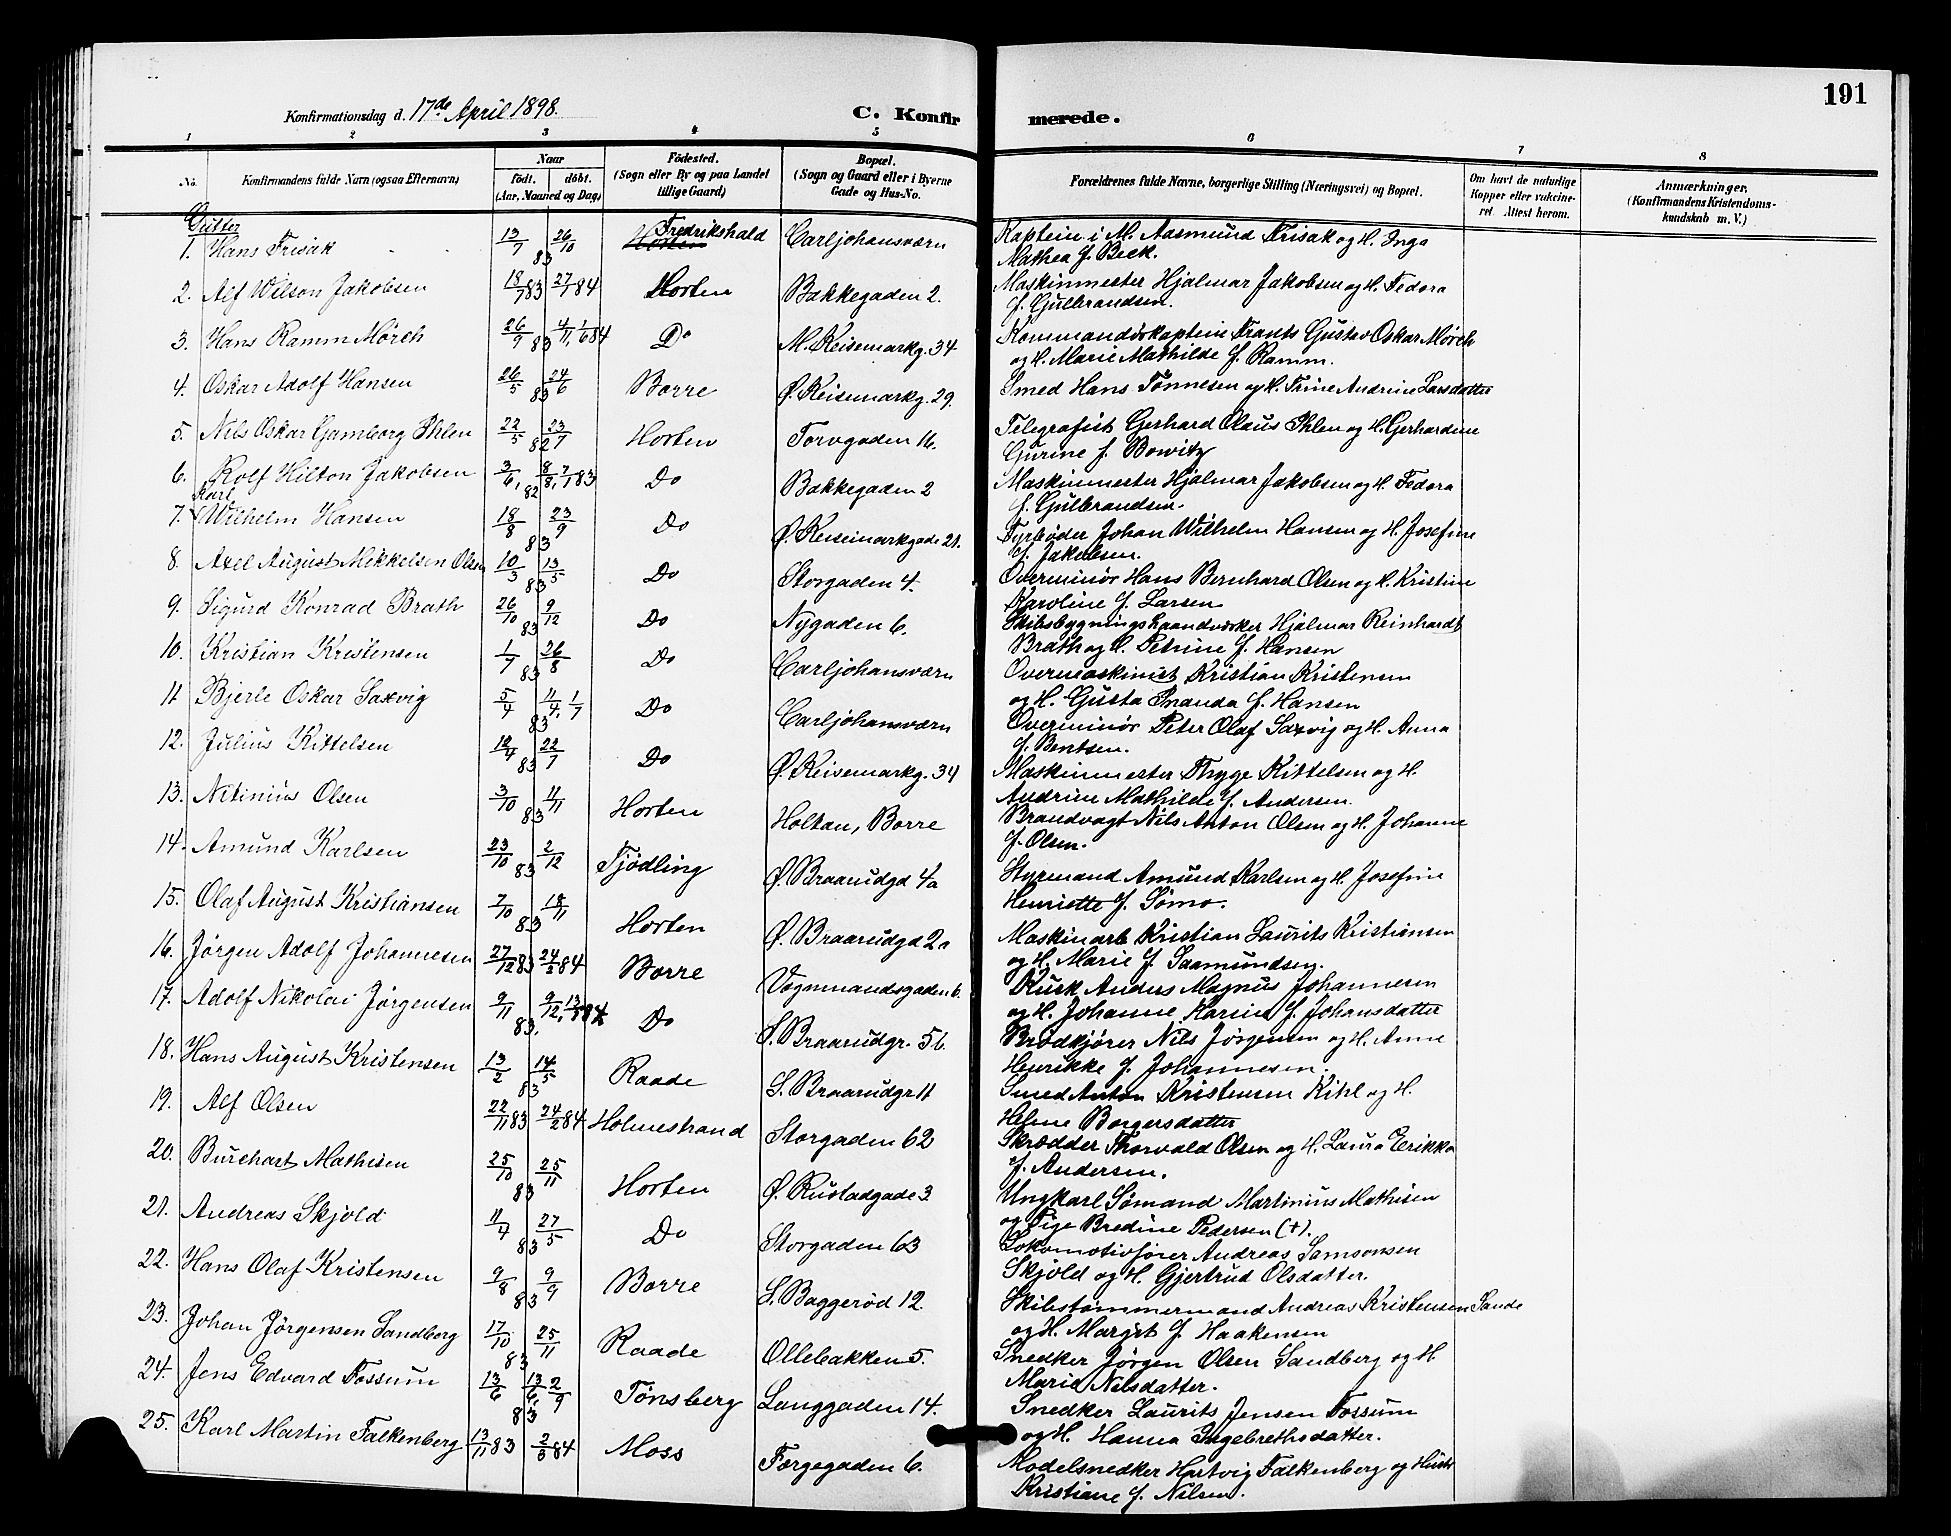 191
Konfirmationsdag d. 17de April 1898.
C. Konfirmerede.
1 2 3 4 5 6 7 8
No. Konfirmandens fulde Navn (ogsaa Efternavn) Naar født. døbt. (Aar, Maaned og Dag) Fødested. (Sogn eller By og paa Landet tillige Gaard) Bopæl. (Sogn og Gaard eller i Byerne Gade og Hus-No. Forældrenes fulde Navne, borgerlige Stilling (Næringsvei) og Bopæl. Om havt de naturlige Kopper eller vakcineret. Attest herom. Anmærkninger. (Konfirmandens Kristendomskundskab m. V.)
Gutter
1. Hans Frisak 13/7 83 26/10 Horten Fredrikshald Carljohansværn Kaptein i M. Aasmund Frisak og H. Inga
Mathea f. Beck.
2. Alf Wilson Jakobsen 18/7 83 27/7 84 Horten Bakkegaden 2. Maskinmester Hjalmar Jakobsen og H. Fedora
f. Gulbrandsen.
3. Hans Ramm Mørch 26/9 83 4/11, 1/6 84 Do M. Keisemarkg. 34 Kommandørkaptein Frants Gustav Oskar Mørch
og H. Marie Mathilde f. Ramm.
4. Oskar Adolf Hansen 26/5 83 24/6 Borre Ø. Keisemarkg. 29. Smed Hans Tønnesen og H. Trine Andrine Larsdatter
5. Nils Oskar Gamborg Ihlen 22/5 82 23/7 Horten Torvgaden 16. Telegrafist Gerhard Olaus Ihlen og H. Gerhardine
Gurine f. Bowitz
6. Rolf Hilton Jakobsen 3/6, 82 8/8, 7/1 83 Do Bakkegaden 2 Maskinmester Hjalmar Jakobsen og H. Fedora
f. Gulbrandsen.
7. Karl Wilhelm Hansen 18/8 83 23/9 Do Ø. Keisemarkgade 21. Fyrbøder Johan Wilhelm Hansen og H. Josefine
f. Jakobsen.
8. Axel August Mikkelsen Olsen 10/3 83 13/5 Do Storgaden 4. Overminør Hans Bernhard Olsen og H. Kristine
Karoline f. Larsen
9. Sigurd Konrad Brath 26/10 83 9/12 Do Nygaden 6. Skibsbygningshaandværker Hjalmar Reinhardt
Brath og H. Petrine f. Hansen
10. Kristian Kristensen 1/7 83 26/8 Do Carljohansværn Overmaskinist Kristian Kristensen
og H. Gusta Inanda f. Hansen
11 Bjerle Oskar Saxvig 5/4 83 11/4, 1/7 Do Carljohansværn Overminør Peter Olaf Saxvig og H. Anna
f. Bentsen.
12. Julius Kittelsen 12/4 83 22/7 Do Ø. Keisemarkg. 34 Maskinmester Thyge Kittelsen og H.
Andrine Mathilde f. Andersen.
13. Nitinius Olsen 3/10 83 11/11 Horten Holtan, Borre Brandvagt Nils Anton Olsen og H. Johanne
f. Olsen.
14. Amund Karlsen 23/10 83 2/12 Tjødling Ø. Braarudgd 4a Styrmand Amund Karlsen og H. Josefine
Henriette f. Sømo.
15. Olaf August Kristiansen 7/10 83 18/11 Horten Ø. Braarudgd 2a Maskinarb Kristian Laurits Kristiansen
og H. Marie f. Saamundsen.
16. Jørgen Adolf Johannesen 27/12 83 24/2 84 Borre Vognmandsgaden 6. Kusk Anders Magnus Johannesen
og H. Johanne Karine f. Johansdatter
17. Adolf Nikolai Jørgensen 9/11 83. 9/12, 84 Do S. Braarudgr. 5b. Brødkjører Nils Jørgensen og H. Anne
Henrikke f. Johannesen.
18. Hans August Kristensen 13/2 83 14/5 Raade S. Braarudgr 11 Smed Anton Kristensen Kihl og H.
Helene Borgersdatter
19. Alf Olsen 22/11 83 24/2 84 Holmestrand Storgaden 62 Skrædder Thorvald Olsen og H. Laura Erikka
f. Andersen.
20. Burchart Mathisen 25/10 83 25/11 Horten Ø. Rustadgade 3 Ungkarl Sømand Martinius Mathisen
og Pige Bredine Pedersen (+).
21. Andreas Skjold 11/4 83 27/5 Do Storgaden 63 Lokomotivfører Andreas Samsonsen
Skjold og H. Gjertrud Olsdatter.
22. Hans Olaf Kristensen 9/8 83 9/9 Borre S. Baggerød 12. Skibstømmermand Andreas Kristensen Sande
og H. Margit f. Haakensen
23. Johan Jørgensen Sandberg 17/10 83 25/11 Raade Ollebakken 5. Snedker Jørgen Olsen Sandberg og H
Marie Nilsdatter.
24. Jens Edvard Fossum 13/6 83 13/6, 2/9 Tønsberg Langgaden 14. Snedker Laurits Jensen Fossum
og H. Hanna Ingebrethsdatter.
25. Karl Martin Falkenberg 13/11 83 2/3 84 Moss Færgegaden 6. Modelsnedker Hartvig Falkenberg og Hustr
Kristiane f. Nilsen.